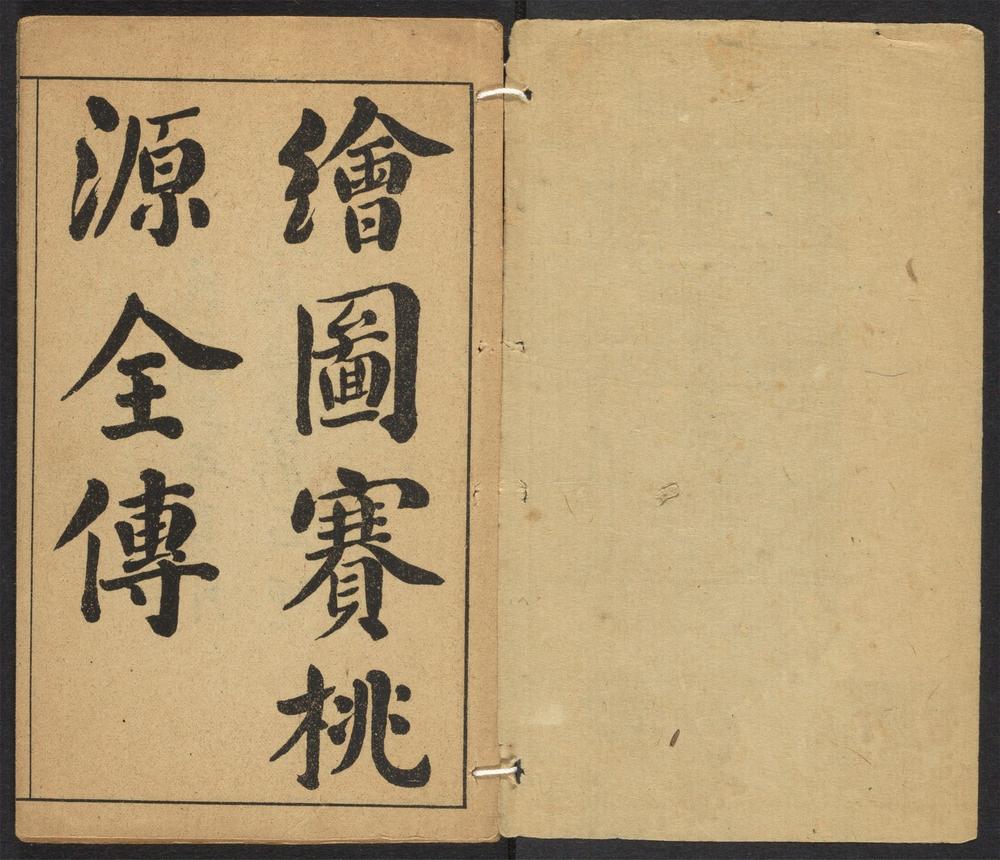 繪圖賽桃
源全傳